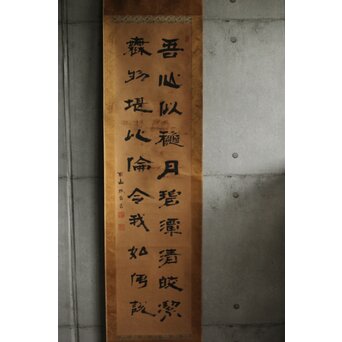 吾心似穐月碧潭清皎潔
無物堪比倫令我如何説